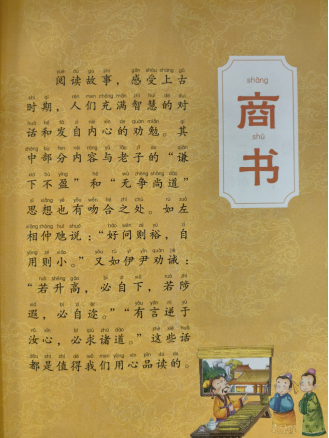 shāng
商
shū
书
阅读故事，感受上古
时期，人们充满智慧的对
话和发自内心的劝勉。其
中部分内容与老子的“谦
下不盈”和“无争尚道”
思想也有吻合之处。如左
相仲虺说：“好问则裕，自
用则小。”又如伊尹劝诫：
“若升高，必自下，若陟
遐，必自迩。”“有言逆于
汝心，必求诸道。”这些话
都是值得我们用心品读的。